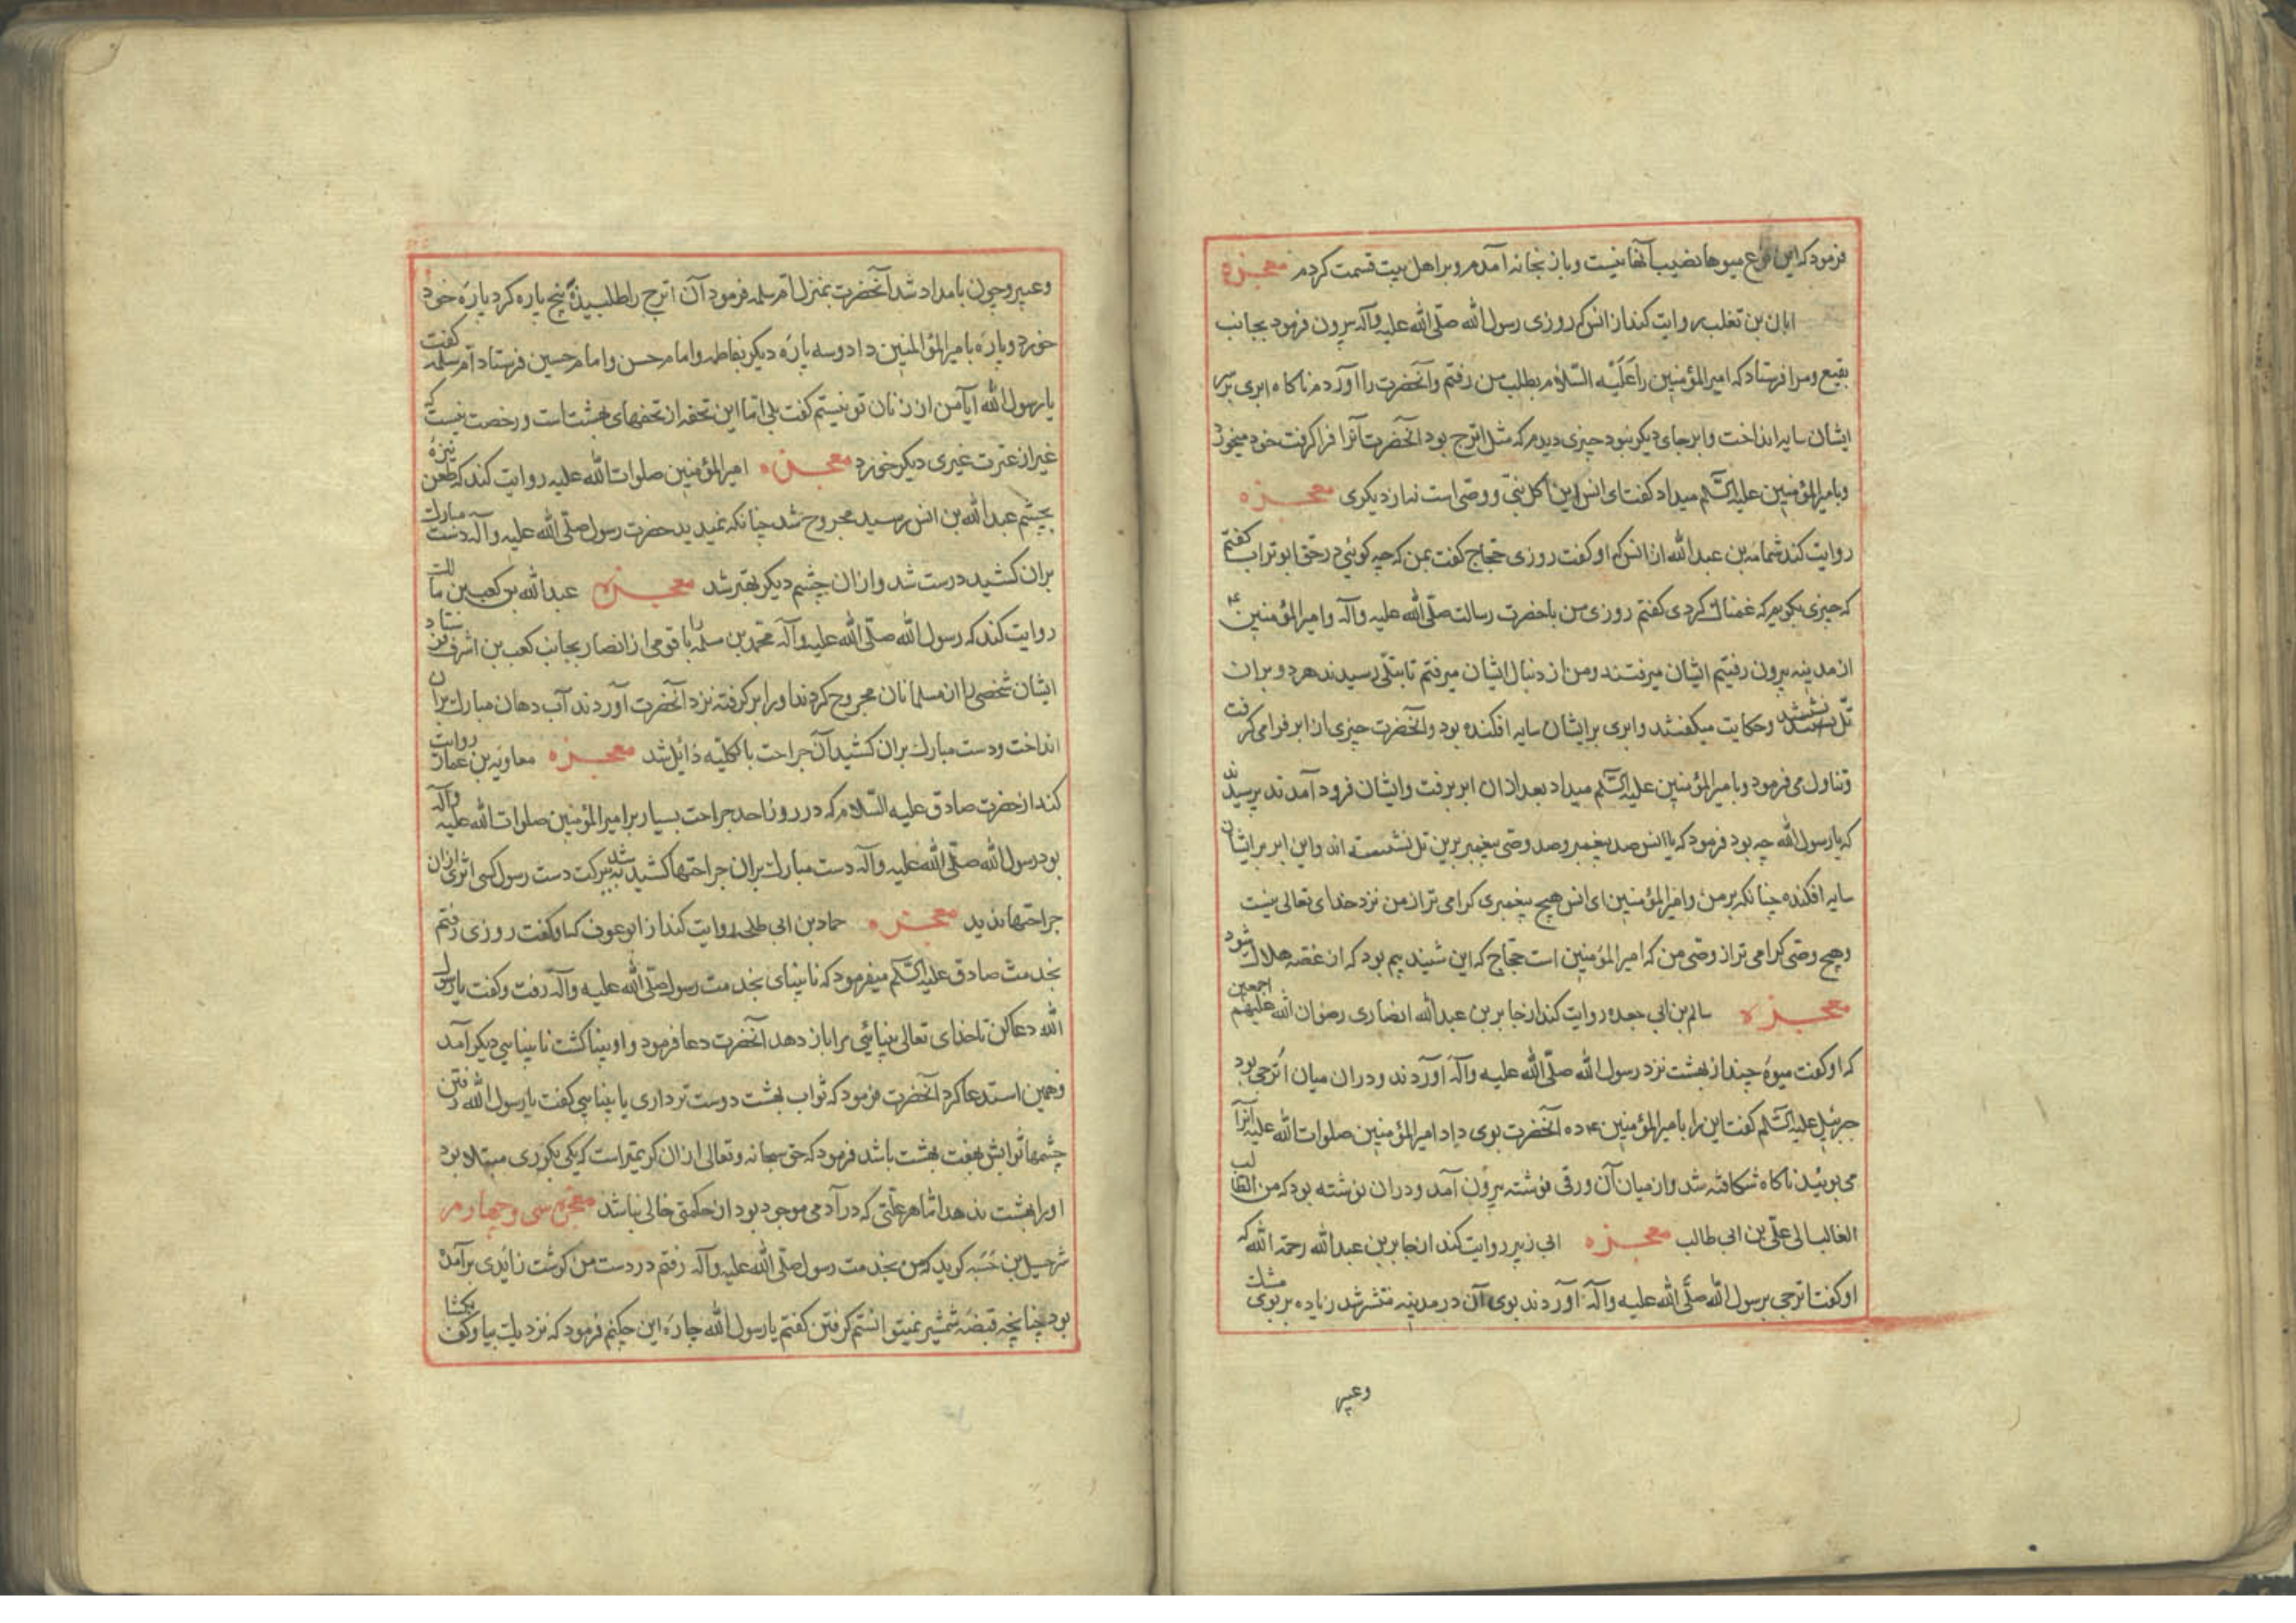 فرمود که این نوع میوها نصیب آنها نیست و باز بخانه آمدم و بر اهل بیت قسمت کردم معجزه
ابان بن تغلب روایت کند از انس که روزی رسول الله صلّی الله علیه وآله بیرون فرمود بجانب
بقیع و مرا فرستاد که امیرالمؤمنین را عَلَیْه السّلام بطلب من رفتم و آنحضرت را آوردم ناکاه ابری بر سر
ایشان سایه انداخت و ابر جای دیکر نبود چیزی دیدم که مثل اترج بود آنحضرت آنرا فرا کرفت خود میخورد
و بامیرالمؤمنین علیه السّلم میداد کفت ای انس این اکل نبیّ و وصی است نه از دیکری معجزه
روایت کند ثمامه بن عبدالله از انس که او کفت روزی حجاج کفت بمن که چه کوئی در حق ابوتراب کفتم
که چیزی بکویم که غمناک کردی کفتم روزی من با حضرت رسالت صلّی الله علیه وآله و امیرالمؤمنین ع
از مدینه بیرون رفتیم ایشان میرفتند و من از دنبال ایشان میرفتم تا بتلّی رسیدند هر دو بران
تلّ بنشستند و حکایت میکفتند و ابری بر ایشان سایه افکنده بود و آنحضرت چیزی از ابر فرا می کرفت
و تناول می فرمود و بامیرالمؤمنین علیه السّلم میداد بعد از ان ابر برفت و ایشان فرود آمدند پرسیدند
که یا رسول الله چه بود فرمود که یا انس صد پیغمبر و صد وصّی پیغمبر برین تل نشسته اند و این ابر بر ایشان
سایه افکنده چنانکه بر من و امیرالمؤمنین ای انس هیچ پیغمبری کرامی تر از من نزد خدای تعالی نیست
و هیچ وصّی کرامی تر از وصّی من که امیرالمؤمنین است حجاج که این شنید بیم بود که از غصّه هلاک شود
معجزه سالم بن ابی جعده روایت کند از جابر بن عبدالله انصاری رضوان الله علیهم اجمعین
که او کفت میوهٔ چند از بهشت نزد رسول الله صلّی الله علیه وآله آوردند و دران میان اُترجی بود
جبرئیل علیه السّلم کفت این را بامیرالمؤمنین ده آنحضرت بوی داد امیرالمؤمنین صلوات الله علیه آنرا
می بوئید ناکاه شکافته شد و از میان آن ورقی نوشته بیرون آمد و دران نوشته بود که من الطالب
الغالب الی علّی بن ابی طالب معجزه ابی زبیر روایت کند از جابر بن عبدالله رحمة الله که
او کفت اترجی بر رسول الله صلّی الله علیه وآله آوردند بوی آن در مدینه منتشر شد زیاده بر بوی مشک
وعبیر
وعبیر و چون بامداد شد آنحضرت بمنزل اُمّ سلمه فرمود آن اترج را طلبیده پنج پاره کرد پارهٔ خود
خورد و پارهٔ بامیرالمؤالمنین داد و سه پارهٔ دیکر بفاطمه و امام حسن و امام حسین فرستاد اُمّ سلمه کفت
یا رسول الله آیا من از زنان تو نیستم کفت بلی امّا این تحفه از تحفهای بهشت است و رخصت نیست که
غیر از عترت غیری دیکر خورد معجزه امیرالمؤمنین صلوات الله علیه روایت کند که طعن نیزهٔ
بچشم عبدالله بن انس رسید مجروح شد چنانکه نمیدید حضرت رسول صلّی الله علیه وآله دست مبارک
بران کشید درست شد و از ان چشم دیکر بهتر شد معجزه عبدالله بن کعب بن مالک
روایت کند که رسول الله صلّی الله علیه وآله محمّد بن سلمه را با قومی از انصار بجانب کعب بن اشرف فرستاد
ایشان شخصی را از مسلمانان مجروح کردند او را بر کرفته نزد آنحضرت آوردند آب دهان مبارک بران
انداخت و دست مبارک بران کشید آن جراحت بالکلیّه زائل شد معجزه معاویه بن عمار روایت
کند از حضرت صادق علیه السّلام که در روز احد جراحت بسیار بر امیرالمؤمنین صلوات الله علیه وآله
بود رسول الله صلّی الله علیه وآله دست مبارک بران جراحتها کشید به شد ببرکت دست رسول کسی اثری از ان
جراحتها ندید معجزه حماد بن ابی طلحه روایت کند از ابوعوف که او کفت روزی رفتم
بخدمت صادق علیه السّلم میفرمود که نابینای بخدمت رسول صلّی الله علیه وآله رفت و کفت یا رسول
الله دعا کن تا خدای تعالی بینائی مرا باز دهد آنحضرت دعا فرمود و او بینا کشت نابینایی دیکر آمد
و همین استدعا کرد آنحضرت فرمود که ثواب بهشت دوست تر داری یا بینایی کفت یا رسول الله رفتن
چشمها ثوابش بهفت بهشت باشد فرمود که حق سبحانه و تعالی از ان کریمتر است که یکی بکوری مبتلا بود
او را بهشت ندهد امّا هر علّتی که در آدمی موجود بود از حکمتی خالی نباشد معجزهٔ سی و چهارم
شرحبیل بن حَسَبه کوید که من بخدمت رسول صلّی الله علیه وآله رفتم در دست من کوشت زائدی برآمده
بود چنانچه قبضهٔ شمشیر نمیتوانستم کرفتن کفتم یا رسول الله چارهٔ این حکنم فرمود که نزدیک بیا و کف بکشا